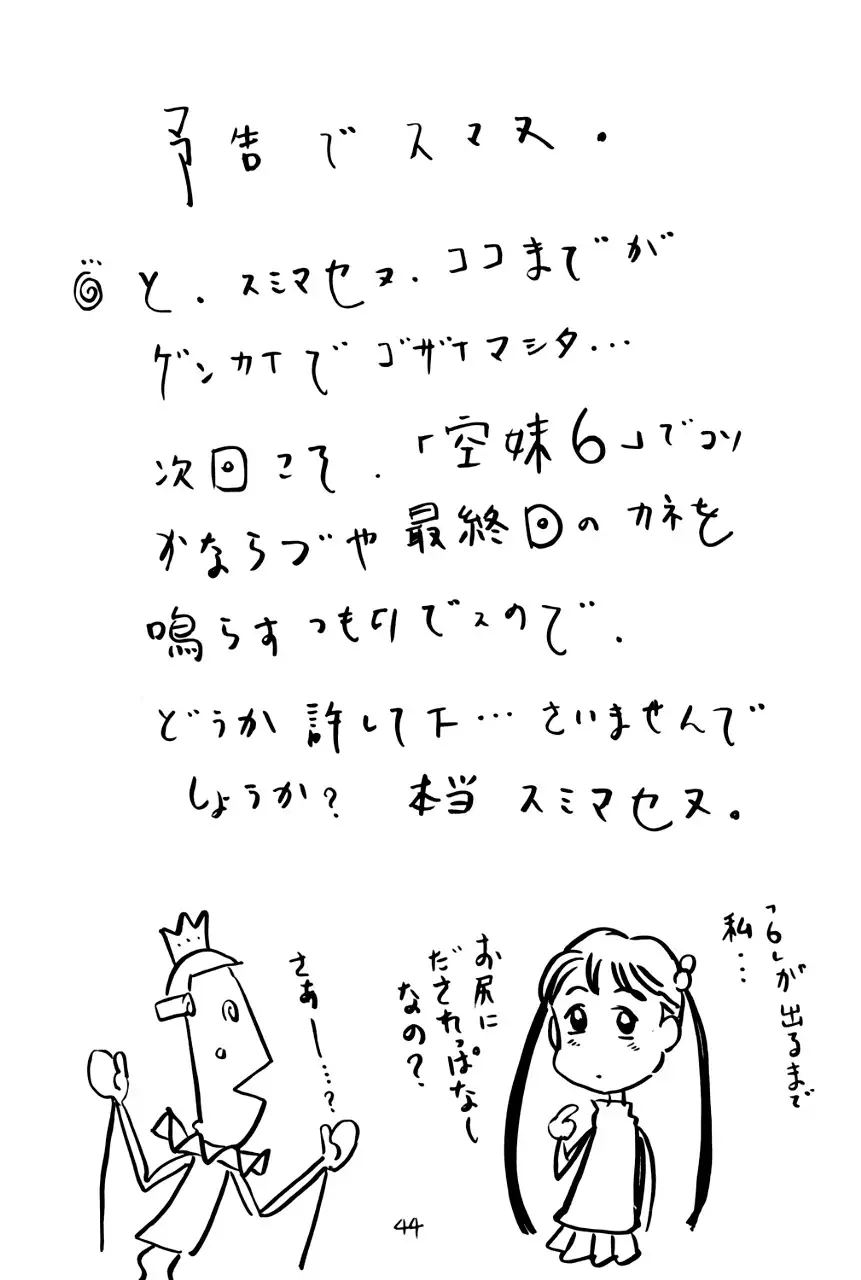 予告でスマヌ.
と.スミマセヌ.ココまでが
ゲンカイでゴザイマシタ…
次回こそ.「空妹6」でコソ
かならづや最終回のカネを
鳴らすつもりでスので.
どうか許して下…さいませんで
しょうか?本当スミマセヌ。
さあー…?
44